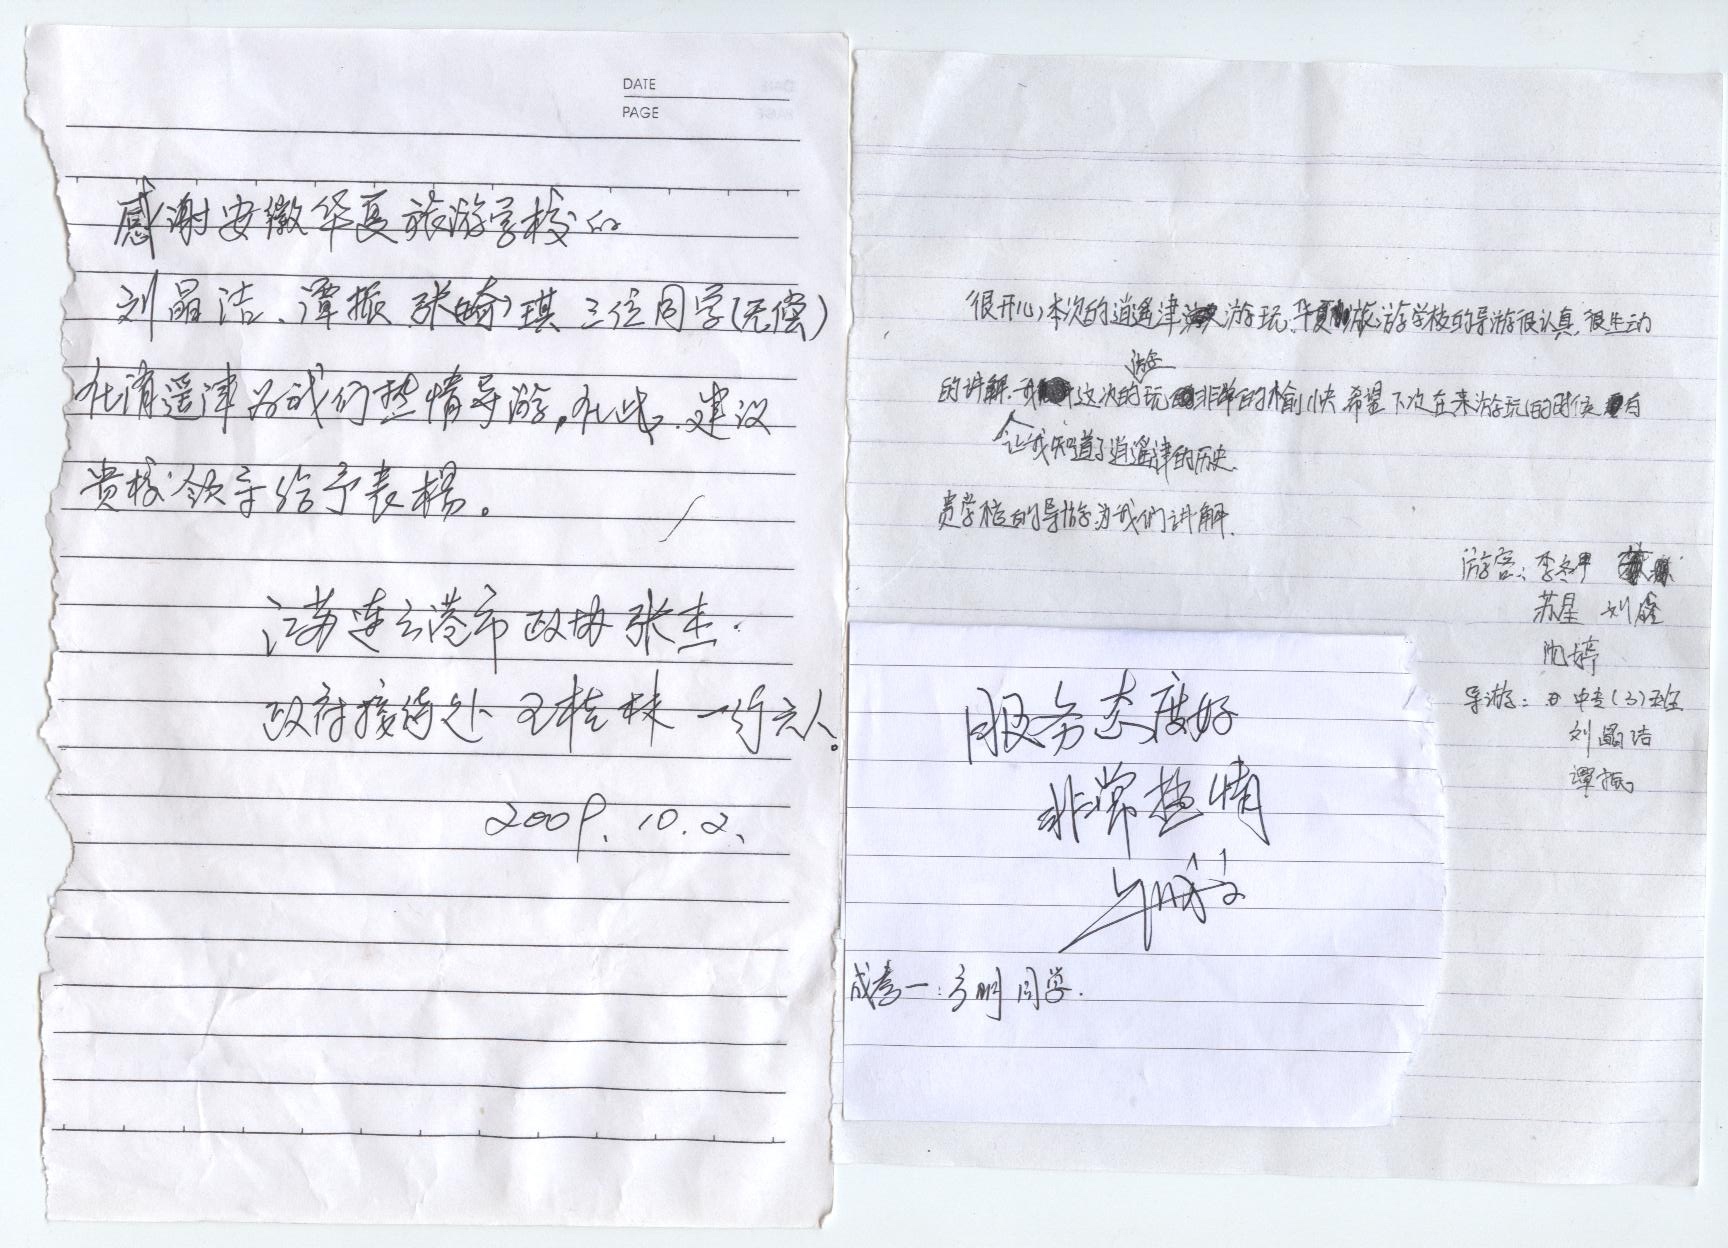 DATE
PAGE
感谢安徽华夏旅游学校的
刘晶洁、谭振 张琦琪 三位同学(无偿)
在逍遥津为我们热情导游,在此,建议
贵校领导给予表扬。
江苏连云港市政协 张杰.
政府接待处 王桂林 一行六人。
2009.10.2.
很开心,本次的逍遥津游玩,华夏旅游学校的导游很认真.很生动
的讲解.这次的游玩非常的愉快.希望下次在来游玩的时候有
让我知道了逍遥津的历史.
贵学校的导游为我们讲解.
游客:李冬
苏星 刘鑫
沈婷
导游: 中专(3)班
刘晶洁
谭振
服务态度好
非常热情
成考一:方明同学.